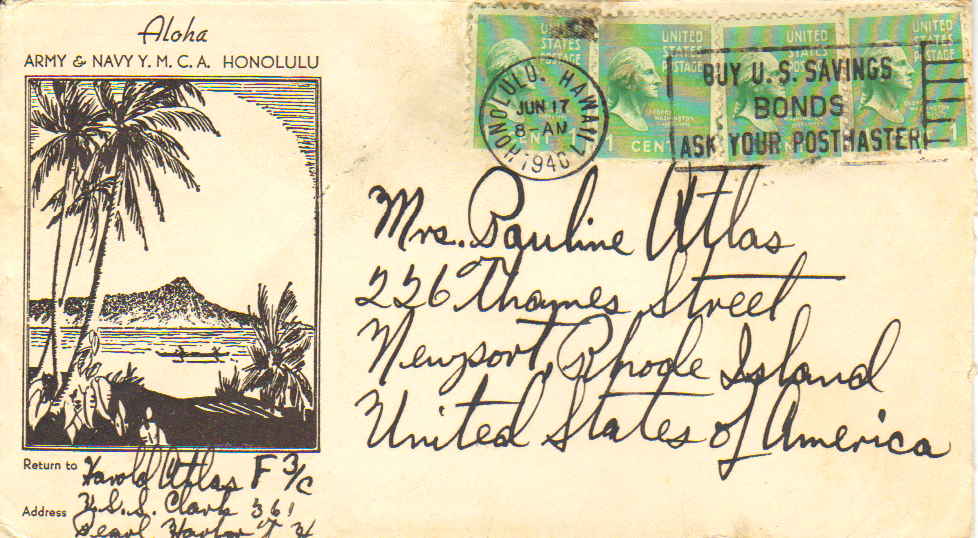 Aloha
ARMY & NAVY Y. M. C. A. HONOLULU
UNITED STATES POSTAGE
UNITED STATES POSTAGE
UNITED STATES POSTAGE
UNITED STATES POSTAGE
GEORGE WASHINGTON
1 CENT
1
HONOLULU, HAWAII
JUN 17
8-AM
1940
BUY U.S. SAVINGS
BONDS
ASK YOUR POSTMASTER
Mrs. Pauline Atlas
226 Thames Street
Newport, Rhode Island
United States of America
Return to Harold Atlas F 3/c
Address U.S.S. Clark 361
Pearl Harbor T H